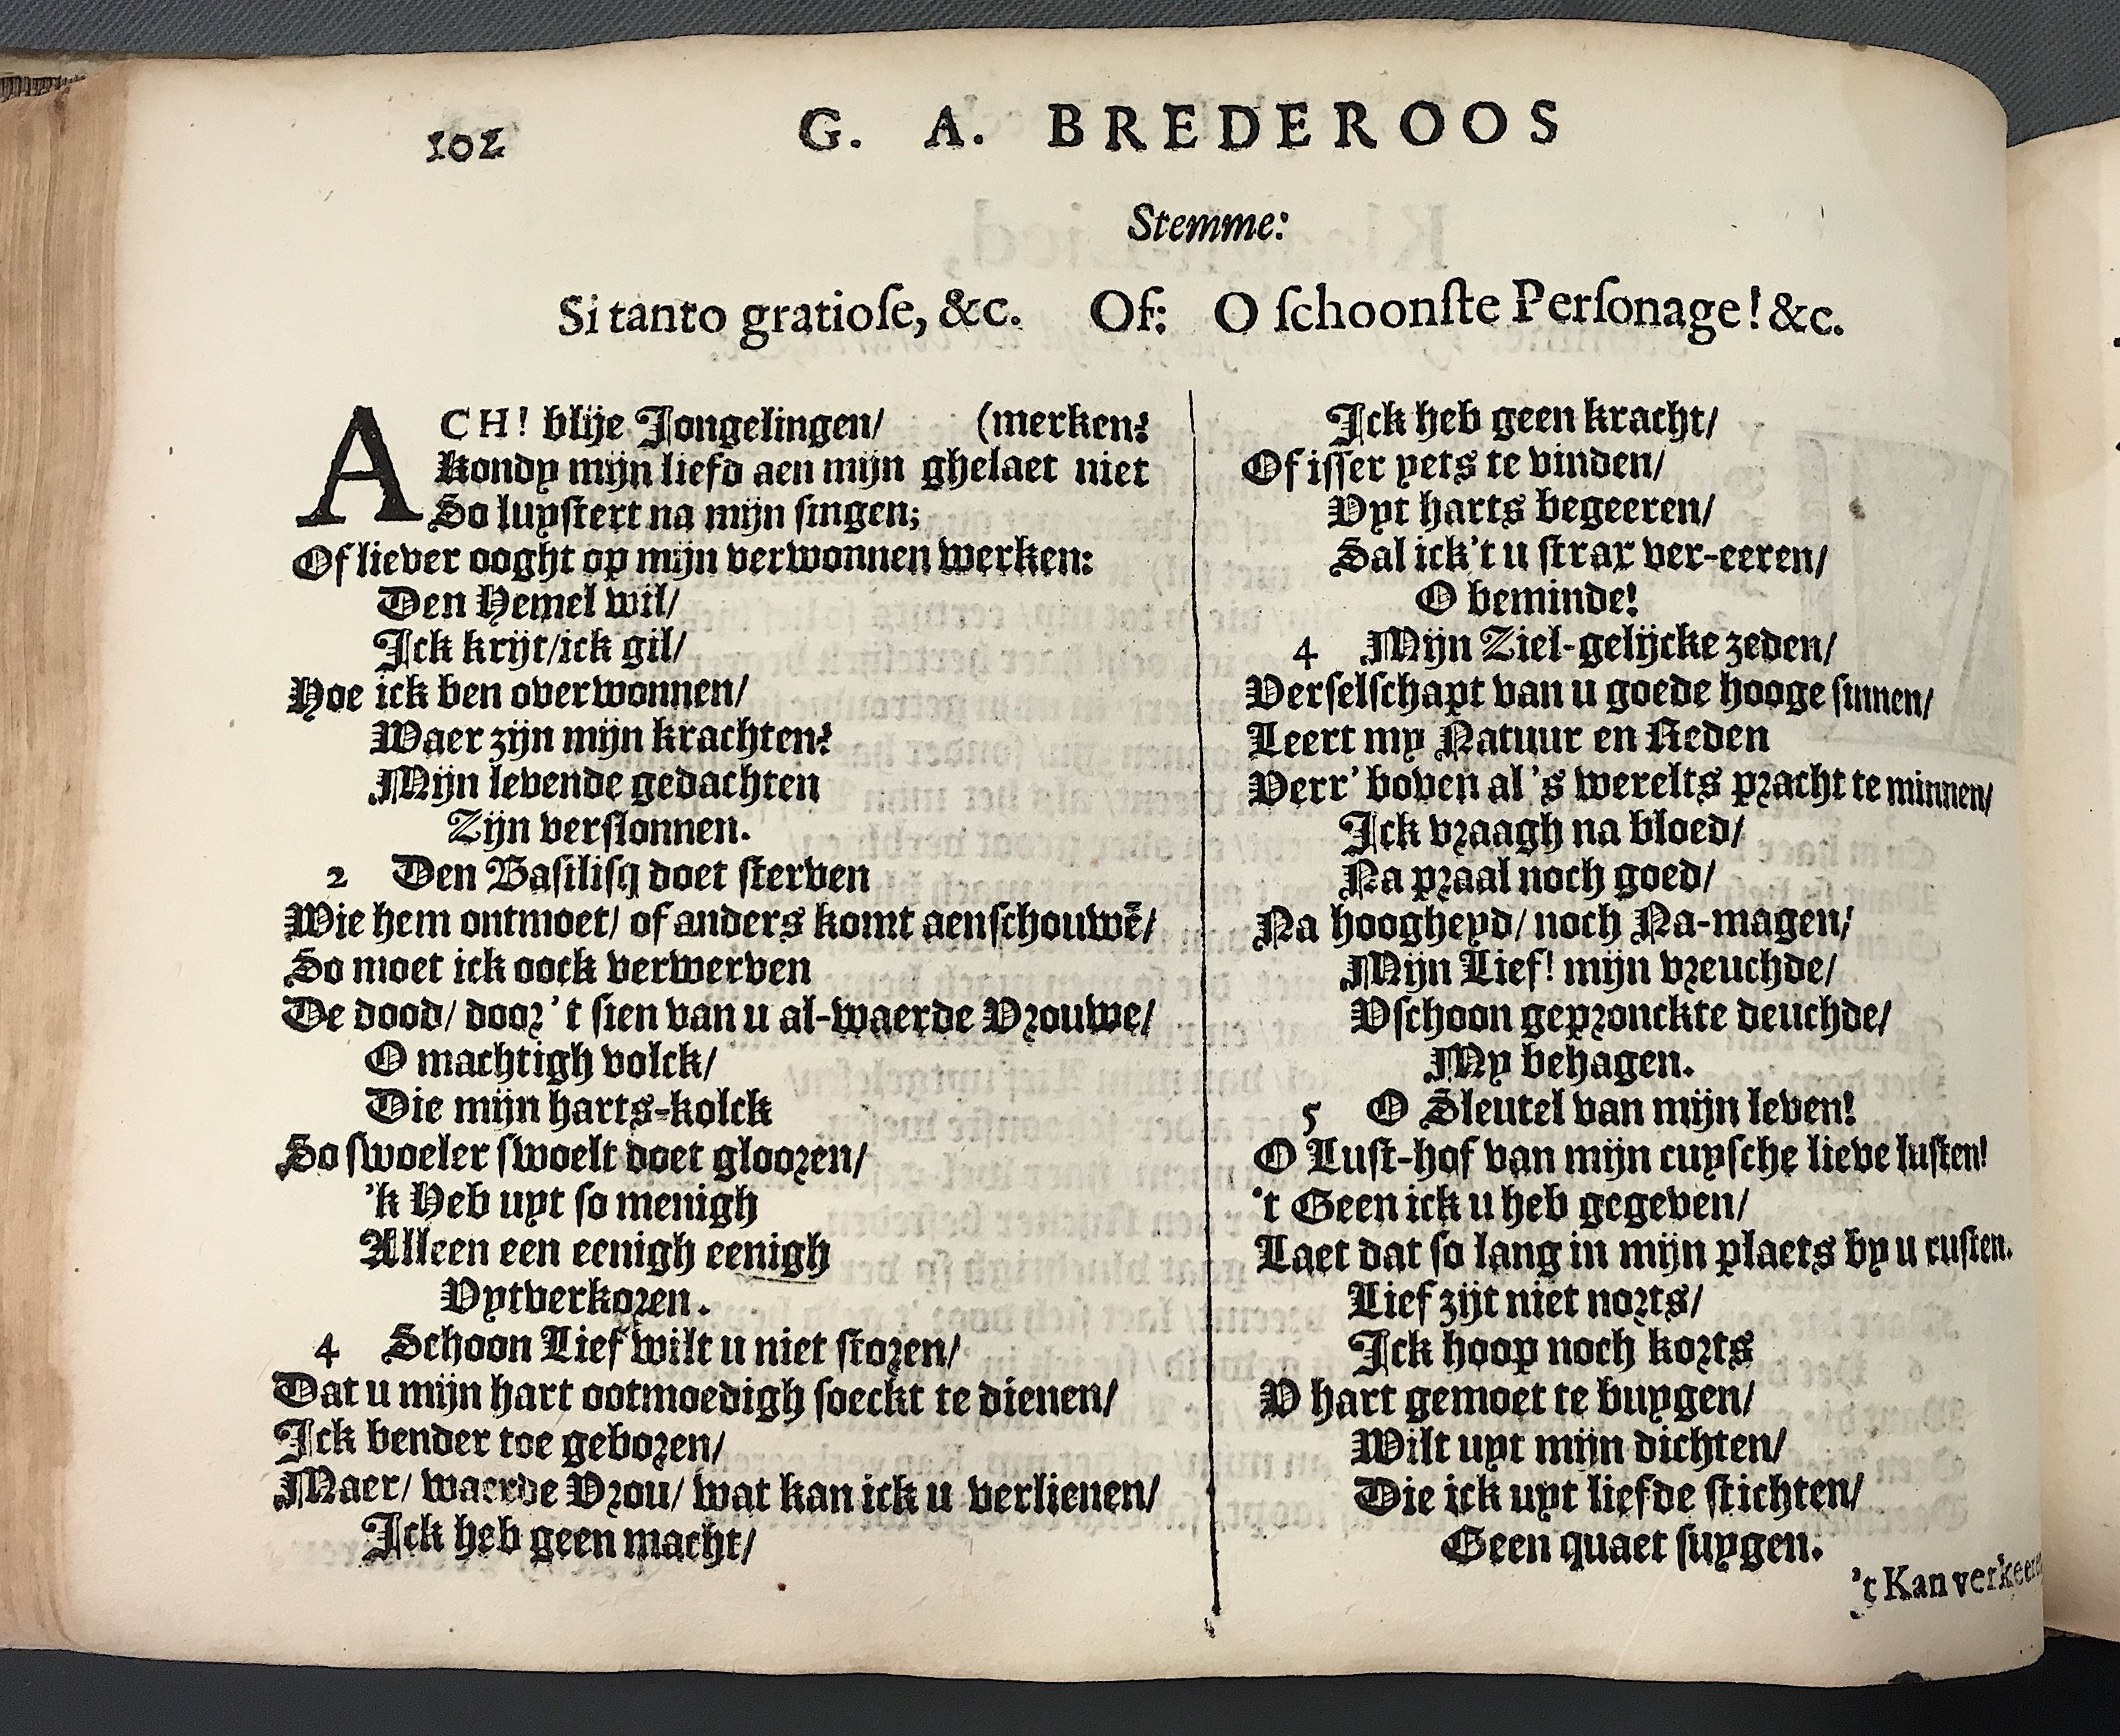 102
G. A. BREDEROOS
Stemme:
Si tanto gratiose, &c. Of: O schoonste Personage! &c.
ACH! blije Jongelingen/ (merken?
Kondy mijn liefd aen mijn ghelaet niet
So luystert na mijn singen;
Of liever ooght op mijn verwonnen werken:
Den Hemel wil/
Ick krijt/ick gil/
Hoe ick ben overwonnen/
Waer zijn mijn krachten?
Mijn levende gedachten
Zijn verslonnen.
2 Den Basilisq doet sterven
Wie hem ontmoet/ of anders komt aenschouwē/
So moet ick oock verwerven
De dood/ door 't sien van u al-waerde Vrouwe/
O machtigh volck/
Die mijn harts-kolck
So swoeler swoelt doet glooren/
'k Heb uyt so menigh
Alleen een eenigh eenigh
Vytverkoren.
4 Schoon Lief wilt u niet storen/
Dat u mijn hart ootmoedigh soeckt te dienen/
Ick bender toe geboren/
Maer/ waerde Vrou/ wat kan ick u verlienen/
Ick heb geen macht/
Ick heb geen kracht/
Of isser yets te vinden/
Vyt harts begeeren/
Sal ick 't u strax ver-eeren/
O beminde!
4 Mijn Ziel-gelijcke zeden/
Verselschapt van u goede hooge sinnen/
Leert my Natuur en Reden
Verr' boven al 's werelts pracht te minnen/
Ick vraagh na bloed/
Na praal noch goed/
Na hoogheyd/ noch Na-magen;
Mijn Lief! mijn vreuchde/
V schoon gepronckte deuchde/
My behagen.
5 O Sleutel van mijn leven!
O Lust-hof van mijn cuysche lieve lusten!
't Geen ick u heb gegeven/
Laet dat so lang in mijn plaets by u rusten.
Lief zijt niet norts/
Ick hoop noch korts
V hart gemoet te buygen/
Wilt uyt mijn dichten/
Die ick uyt liefde stichten/
Geen quaet suygen.
't Kan verkeeren